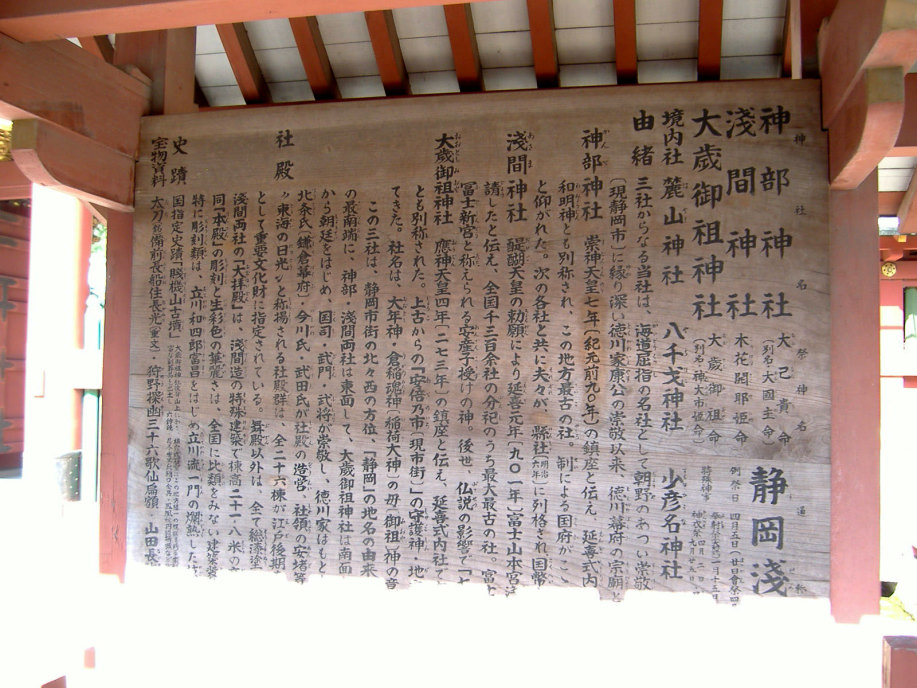 神社名
神部神社
浅間神社
大歳御祖神社
祭神名
大己貴命
(別名)大國主命
木花開耶姫命
大歳御祖命
(別名)神大市姫命
通称
静岡浅
例祭日 四月五日
境内社 麓山神社 八千戈神社 少彦名神社
由緒
三社からなる当社は、海道屈指の名社として朝野のあつい崇敬
(現静岡市)に縁り深い徳川家康公の崇敬以来、徳川幕府の宗廟と
神部神社
崇神天皇七年(紀元前九〇年)の鎮座と伝え、延喜式内
和明神とも別称され、この地方最古の社。国制による国府が、こ
と仰がれた。次の各社と共に夫々が、縣社に列格され国幣
浅間神社
醍醐天皇の勅願により延喜元年(九〇一年)富士山本宮
請したと伝え、全国千三百余社の分祀のうち最大最古の社。富士
冨士新宮と称えられる安産子授けの神。後世、仏説の影響で、
大歳御祖神社
應神天皇四年(二七三年)の鎮座と伝え、延喜式内社で
とも別称された。上古からの「安倍乃市」(現市街)の守護神、地
てきた。社名は、大年神・倉稲魂神(稲荷大神)の母、御祖神の意
社殿
この三社は、静岡市街の北々西の方位、「静岡」の地名の由来
の最南端に、神部・浅間両社は東面して、大歳御祖神社は南面
から、朝廷をはじめ、国司、武門、武将が崇敬し、徳川家はもと
北条氏(鎌倉幕府)・今川氏・武田氏が社殿の造営、社領の安堵等
"東海の日光"と称揚される社殿群は、全二十六棟が江戸後期
として重要文化財に指定されている。舞殿以外は、全て総漆塗
浅間両社の「大拝殿」は、浅間造の特殊建築で棟高二十一八米の
同「本殿」の彫刻と生彩色の華麗さは、全国に比類をみない建築
特に彫刻類は、立川和四郎富昌をはじめ立川流一門の爛熟した
史蹟
国指定史蹟「賤機山古墳」
宝物資料
太刀「銘備前長船住長光」(重文) 狩野探幽「三十六歌仙扁額」 山田長